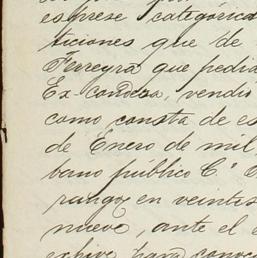 esprese categórica
ticiones que de
Ferreyra que pedia
Ex-condesa, vendió
como consta de es
de Enero de mil
bano público C.º
rango, en veintis
nueve, ante el
exhive para conoc